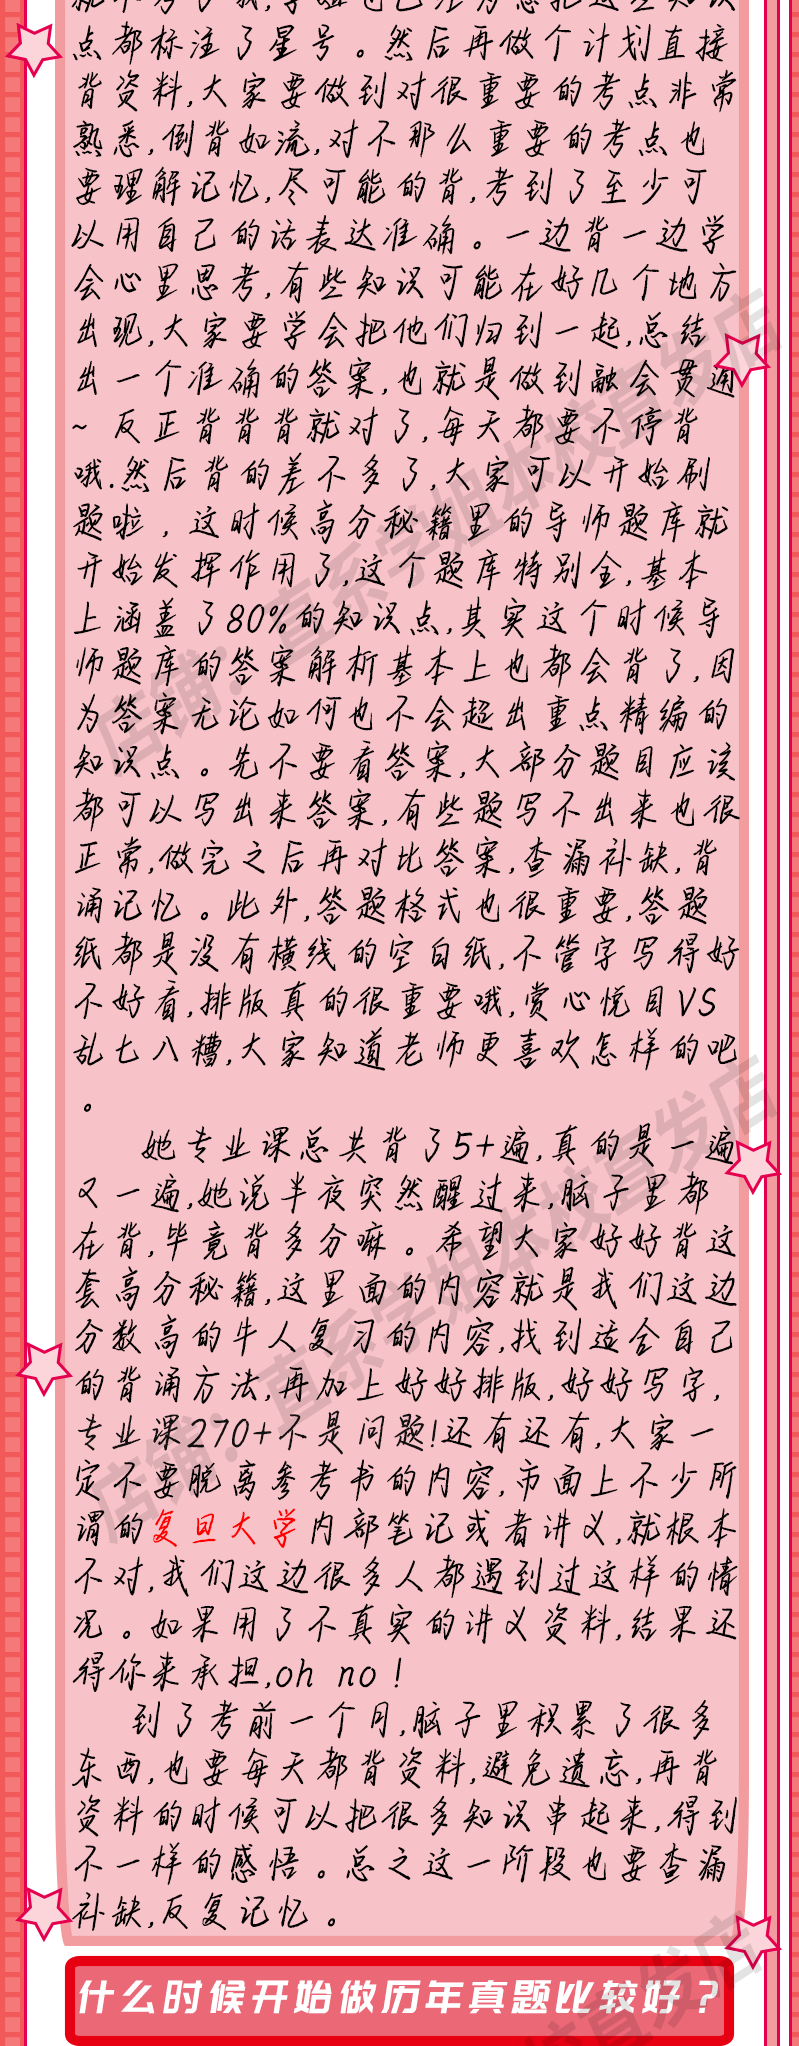 点都标注了星号。然后再做个计划直接
背资料,大家要做到对很重要的考点非常
熟悉,倒背如流,对不那么重要的考点也
要理解记忆,尽可能的背,考到了至少可
以用自己的话表达准确。一边背一边学
会心里思考,有些知识可能在好几个地方
出现,大家要学会把他们归到一起,总结
出一个准确的答案,也就是做到融会贯通
~ 反正背背背就对了,每天都要不停背
哦.然后背的差不多了,大家可以开始刷
题啦，这时候高分秘籍里的导师题库就
开始发挥作用了,这个题库特别金,基本
上涵盖了80%的知识点,其实这个时候导
师题库的答案解析基本上也都会背了,因
为答案无论如何也不会超出重点精编的
知识点。先不要看答案,大部分题目应该
都可以写出来答案,有些题写不出来也很
正常,做完之后再对比答案,查漏补缺,背
诵记忆。此外,答题格式也很重要,答题
纸都是没有横线的空白纸,不管字写得好
不好看,排版真的很重要哦,赏心悦目VS
乱七八糟,大家知道老师更喜欢怎样的吧
。
她专业课总共背了5+遍,真的是一遍
又一遍,她说半夜突然醒过来,脑子里都
在背,毕竟背多分嘛。希望大家好好背这
套高分秘籍,这里面的内容就是我们这边
分数高的牛人复习的内容,找到适合自己
的背诵方法,再加上好好排版,好好写字,
专业课270+不是问题!还有还有,大家一
定不要脱离参考书的内容,市面上不少所
谓的复旦大学内部笔记或者讲义,就根本
不对,我们这边很多人都遇到过这样的情
况。如果用了不真实的讲义资料,结果还
得你来承担,oh no！
到了考前一个月,脑子里积累了很多
东西,也要每天都背资料,避免遗忘,再背
资料的时候可以把很多知识串起来,得到
不一样的感悟。总之这一阶段也要查漏
补缺,反复记忆。
什么时候开始做历年真题比较好？
店铺：直系学姐本校直发店
店铺：直系学姐本校直发店